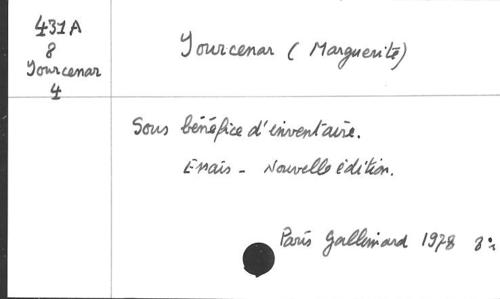 431A
8
Yourcenar
4
Yourcenar (Marguerite)
Sous bénéfice d'inventaire.
Essais - Nouvelle édition.
Paris Gallimard 1978 8°